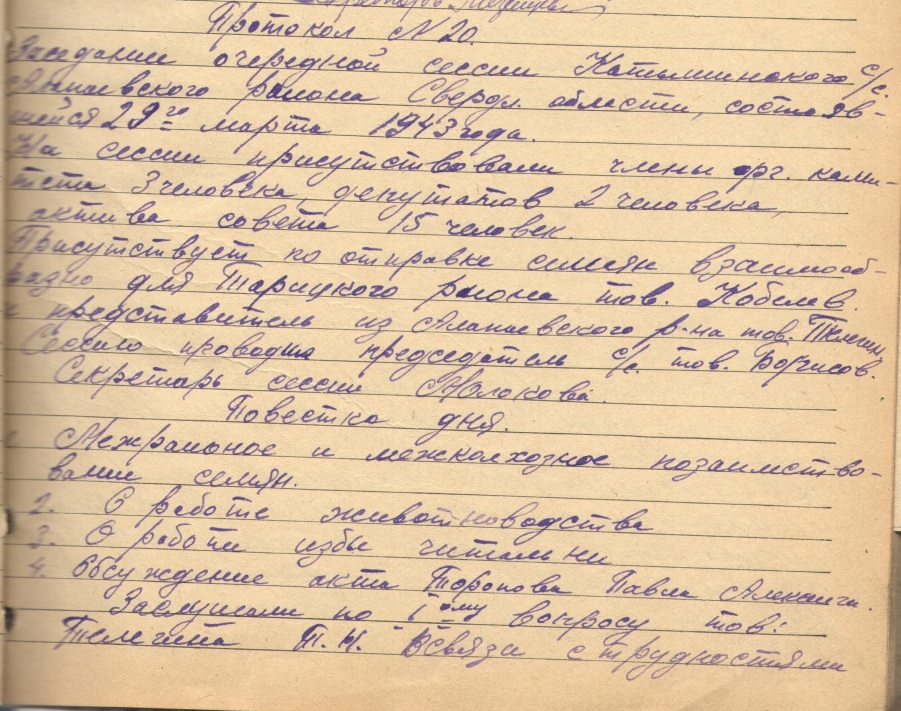 Протокол № 20.
Заседание очередной сессии Катышинского с/с.
Алапаевского района Свердл. области, состояв-
шейся 29го марта 1943 года.
На сессии присутствовали члены орг. коми-
тета 3 человека, депутатов 2 человека,
актива совета 15 человек.
Присутствует по отправке семян взаимооб-
разно для Тарицкого района тов. Кобелев.
и представитель из Алапаевского р-на тов. Телегин
Сессию проводил председатель с/с. тов. Борисов.
Секретарь сессии Молокова.
Повестка дня.
Межрайоное и межколхозное позаимство-
вание семян.
2. О работе животноводства
3. О работи избы читальни
4. Обсуждение акта Торопова Павла Алексан.
Заслушали по 1ому вопросу тов.
Телегина Т.Н. Всвязи с трудностями